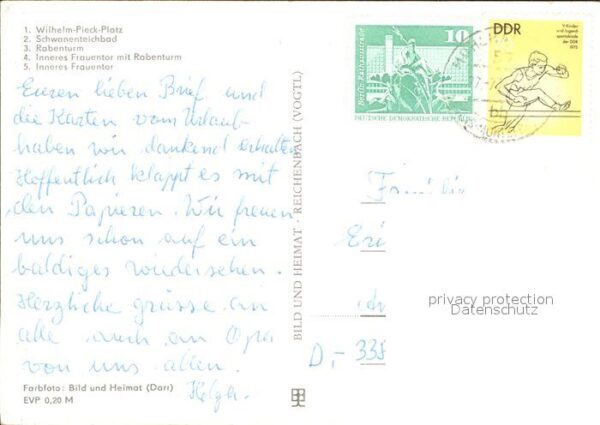 1. Wilhelm-Pieck-Platz
2. Schwanenteichbad
3. Rabenturm
4. Inneres Frauentor mit Rabenturm
5. Inneres Frauentor
Euren lieben Brief und
die Karten vom Urlaub
haben wir dankend erhalten
Hoffentlich klappt es mit
den Papieren. Wir freuen
uns schon auf ein
baldiges wiedersehen.
Herzliche grüsse an
alle auch an Opa
von uns allen.
Helga.
Farbfoto: Bild und Heimat (Darr)
EVP 0,20 M
BILD UND HEIMAT · REICHENBACH (VOGTL)
10
Berlin, Rathausstraße
DEUTSCHE DEMOKRATISCHE REPUBLIK
DDR
V. Kinder-
und Jugend-
spartakiade
der DDR
1975
Familie
Eri
D,- 335
privacy protection
Datenschutz